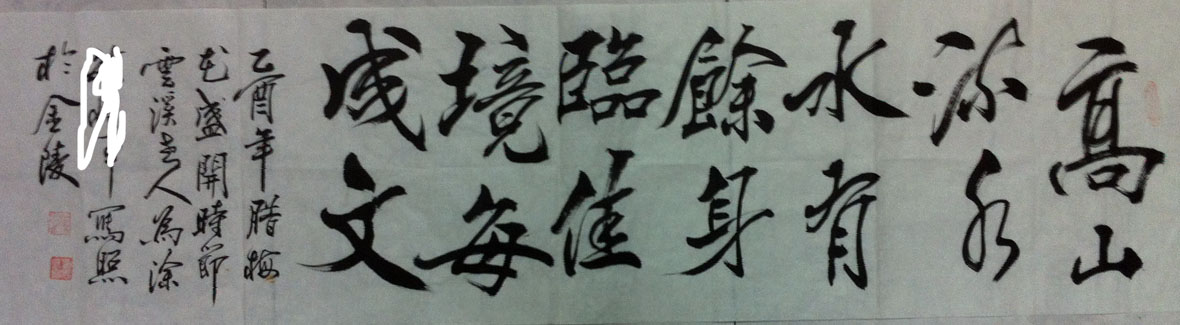 高山
流水
永有
餘身
臨佳
境每
成文
乙酉年腊梅
花盛開時節
雲溪老人為涂
寫照
於金陵